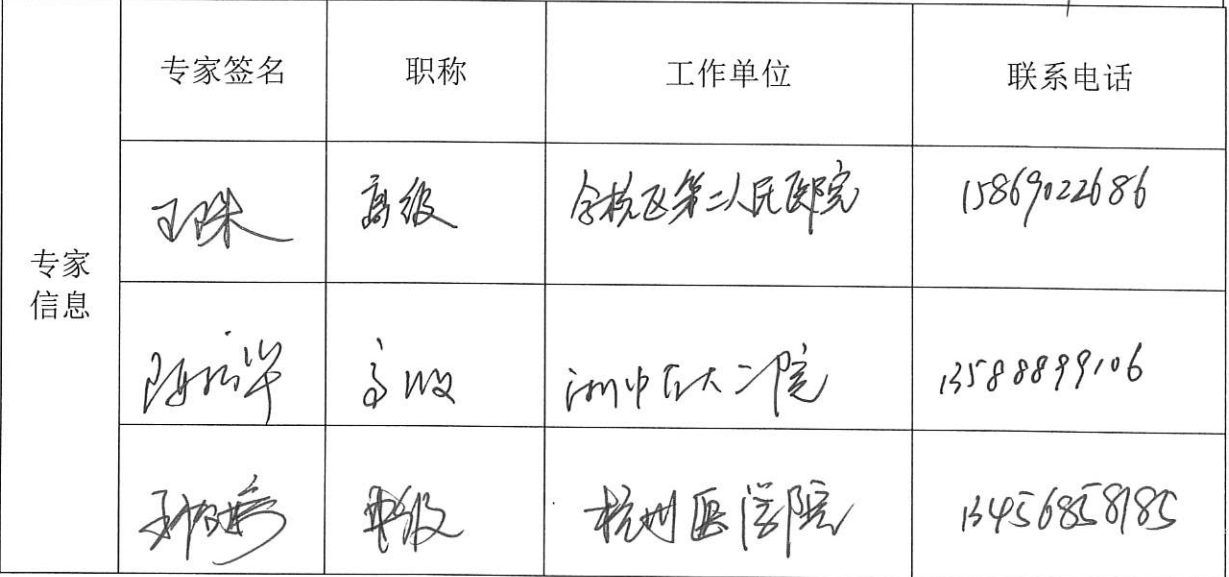 专家签名 职称 工作单位 联系电话
专家
信息
王珠 高级 余杭区第二人民医院 15869022686
高级 浙中医大二院 13588899106
中级 杭州医学院 13456858185